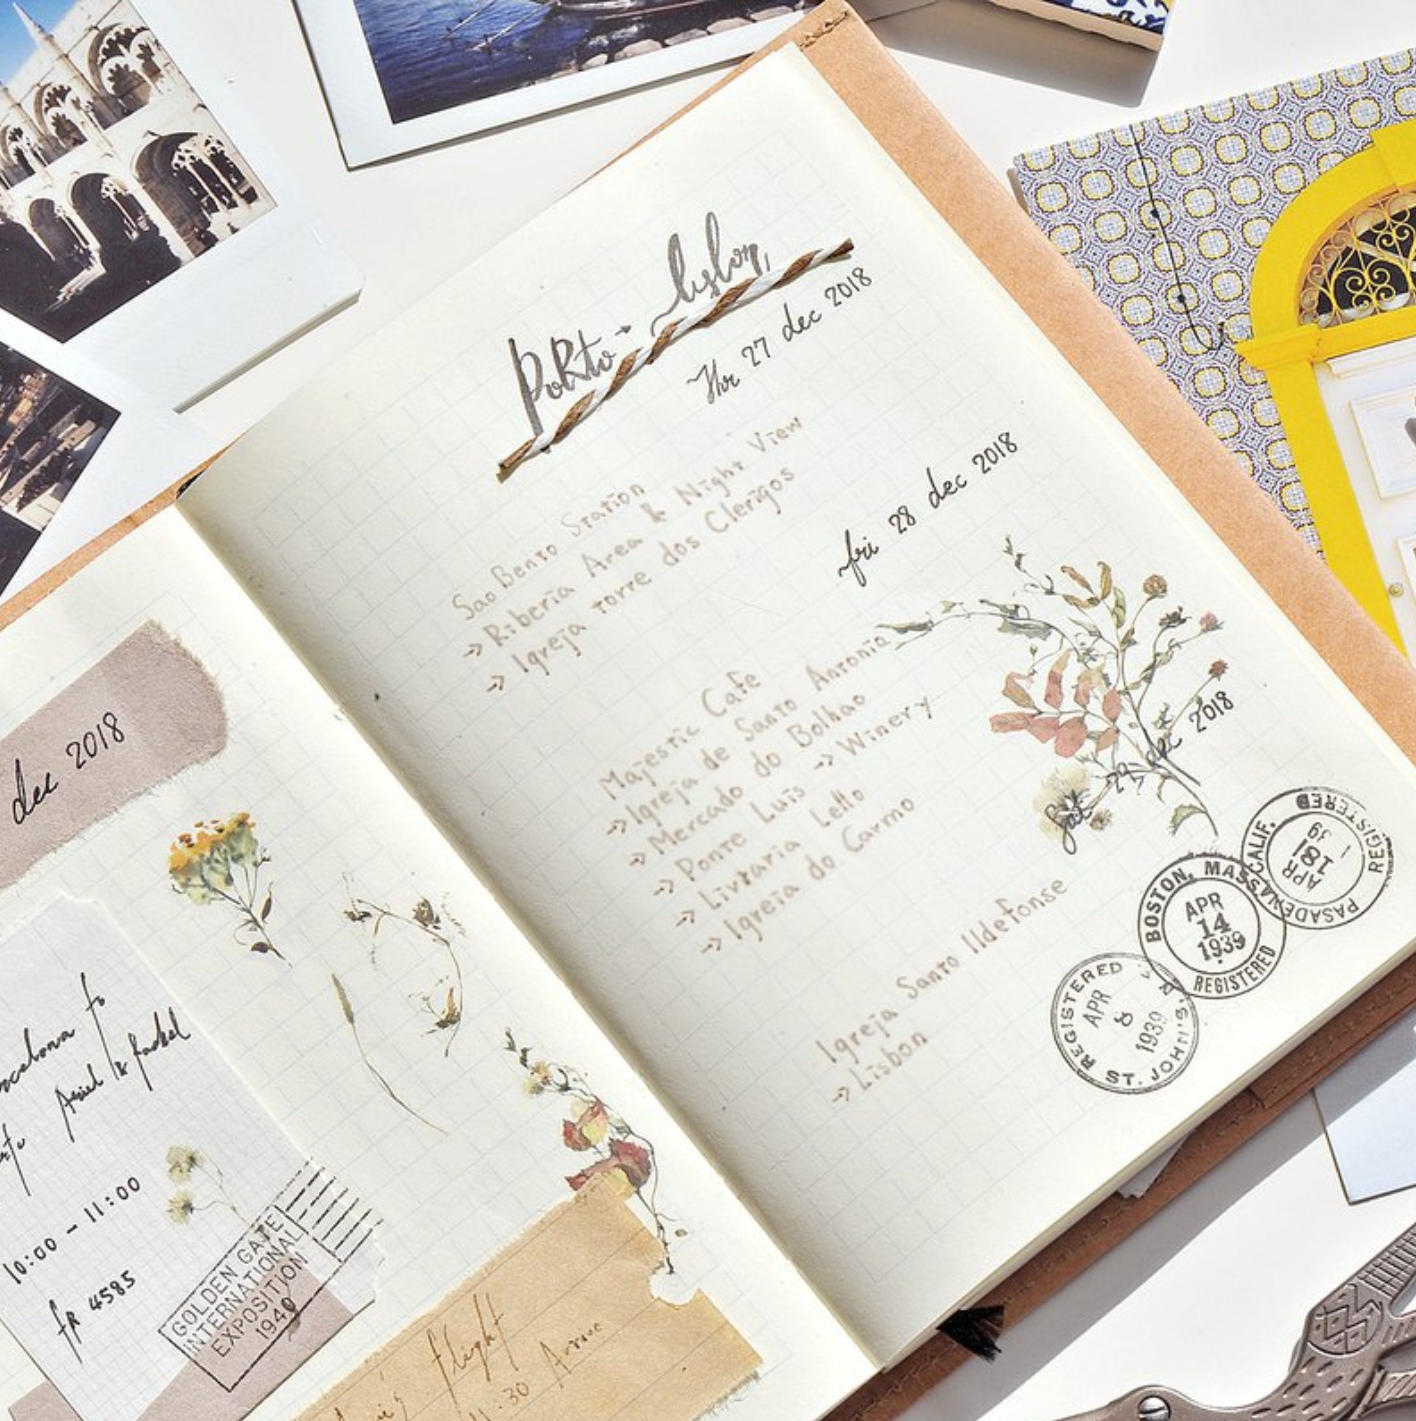 dec 2018
to
Ariel & Rachel
10:00 - 11:00
fR 4585
GOLDEN GATE
INTERNATIONAL
EXPOSITION
1940
flight
:30
Porto - lisbon
Thr 27 dec 2018
Sao Bento Station
→ Riberia Area & Night View
→ Igreja torre dos Clerigos
fri 28 dec 2018
Majestic Cafe
→ Igreja de Santo Antonia
→ Mercado do Bolhao
→ Ponte Luis → Winery
→ Livraria Lello
→ Igreia do Carmo
Sat 29 dec 2018
Igreja Santo Ildefonse
→ Lisbon
REGISTERED
APR
8
1939
ST. JOHN'S,
BOSTON, MASS.
APR
14
1939
REGISTERED
PASADENA, CALIF.
APR
18
REGISTERED